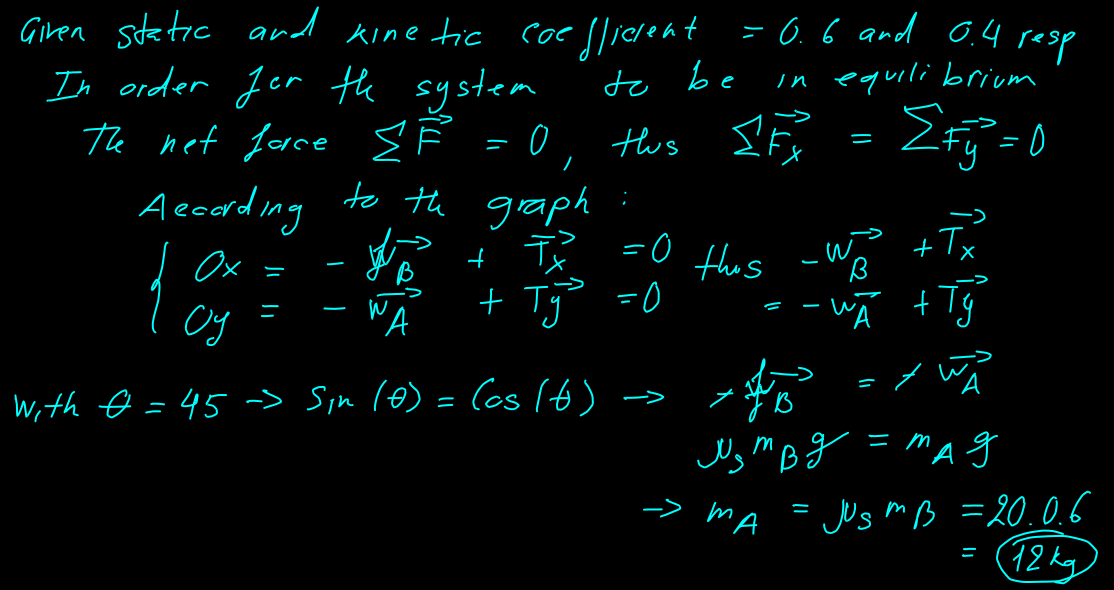 Given static and kinetic coefficient = 0.6 and 0.4 resp
In order for the system to be in equilibrium
The net force ∑F⃗ = 0, thus ∑F⃗x = ∑F⃗y = 0
According to the graph :
{ Ox = - f⃗B + T⃗x = 0 thus - W⃗B + T⃗x
Oy = - W⃗A + T⃗y = 0 = - W⃗A + T⃗y
With θ = 45 -> Sin (θ) = Cos (θ) -> - f⃗B = - W⃗A
μs mB g = mA g
-> mA = μs mB = 20.0.6
= 12 kg